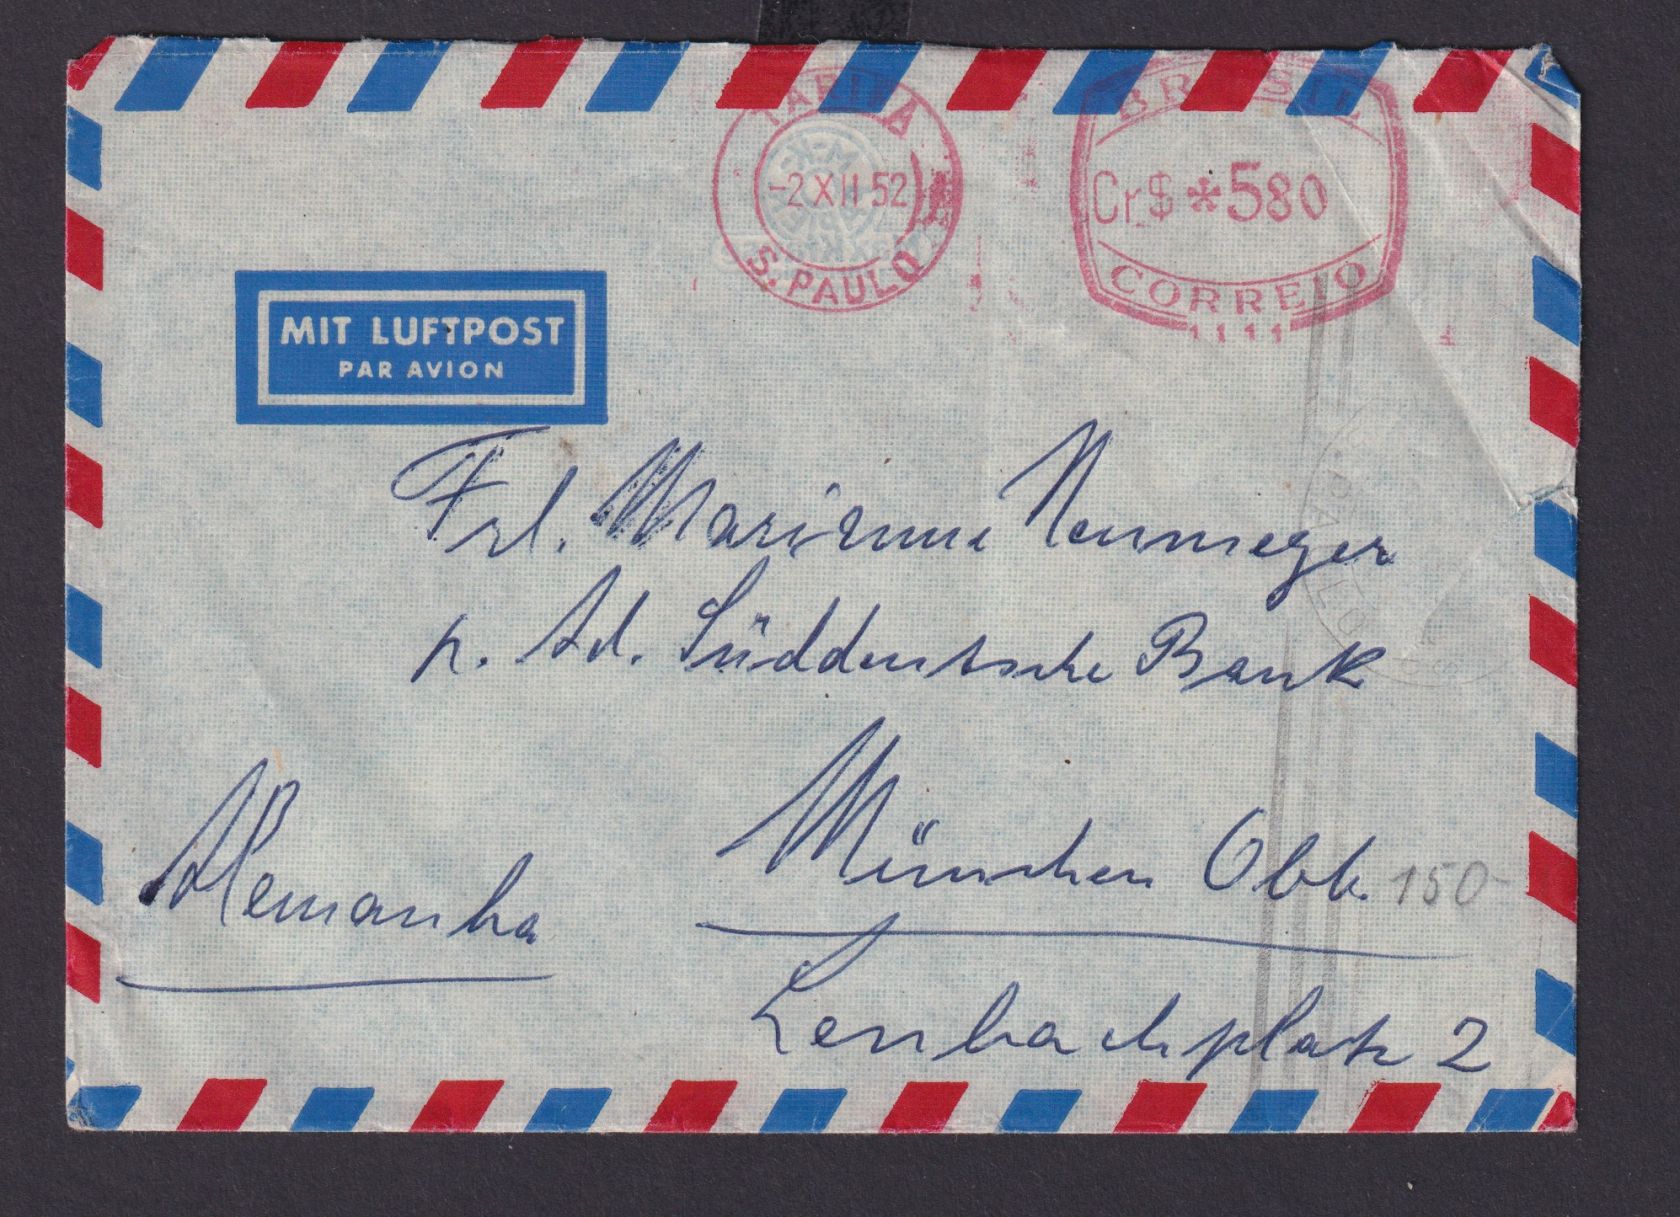 TARIFA
-2 XII 52
S. PAULO
BRASIL
Cr$ *580
CORREIO
1111
MIT LUFTPOST
PAR AVION
Frl. Marianne Neumeyer
p. Ad. Süddeutsche Bank
München Obb.
150-
Alemanha
Lenbachplatz 2
PAULO